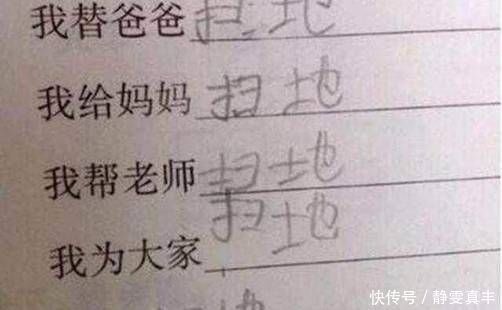 我替爸爸扫地
我给妈妈扫地
我帮老师扫地
我为大家扫地
地
快传号/静雯真丰